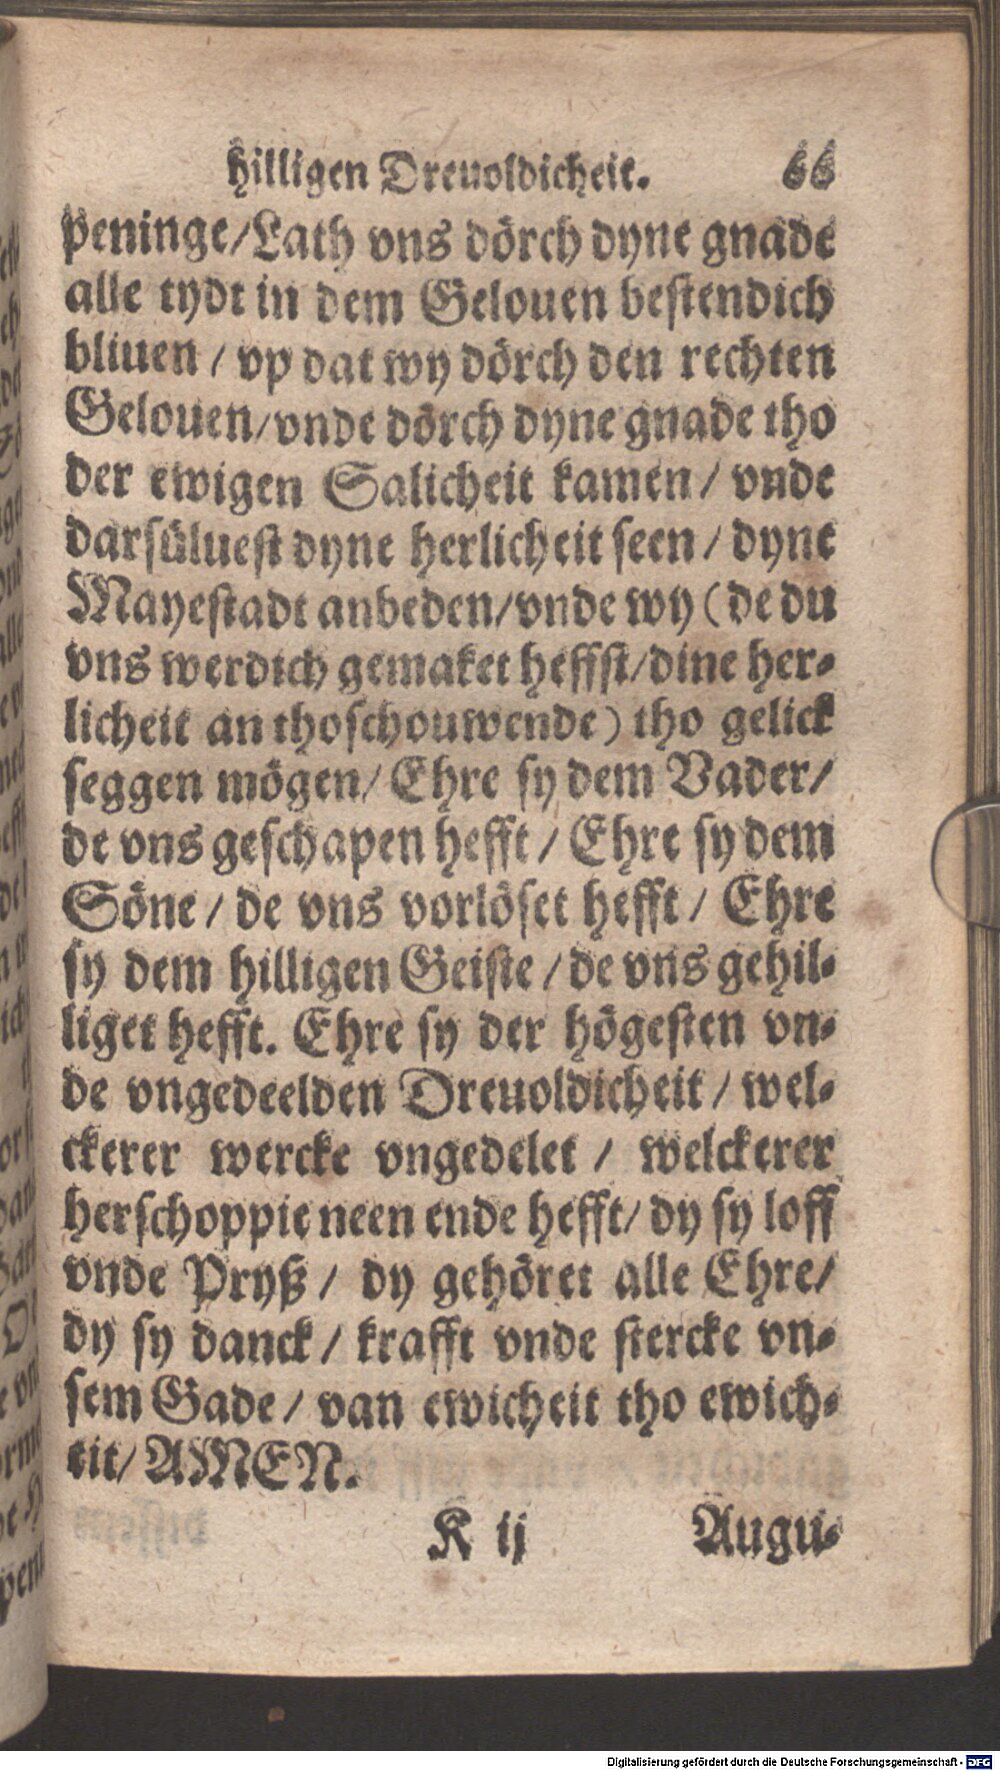 hilligen Dreuoldicheit. 66
peninge/Lath vns dörch dyne gnade
alle tydt in dem Gelouen bestendich
bliuen / vp dat wy dörch den rechten
Gelouen/vnde dörch dyne gnade tho
der ewigen Salicheit kamen / vnde
darsüluest dyne herlicheit seen / dyne
Mayestadt anbeden/vnde wy (de du
vns werdich gemaket heffst/dine her-
licheit an thoschouwende) tho gelick
seggen mögen/ Ehre sy dem Vader/
de vns geschapen hefft / Ehre sy dem
Söne / de vns vorlöset hefft / Ehre
sy dem hilligen Geiste / de vns gehil-
liget hefft. Ehre sy der högesten vn-
de vngedeelden Dreuoldicheit / wel-
ckerer wercke vngedelet / welckerer
herschoppie neen ende hefft/ dy sy loff
vnde Pryß / dy gehöret alle Ehre/
dy sy danck / krafft vnde stercke vn-
sem Gade / van ewicheit tho ewich-
eit/ AMEN.
K ij Augu-
Digitalisierung gefördert durch die Deutsche Forschungsgemeinschaft - DFG